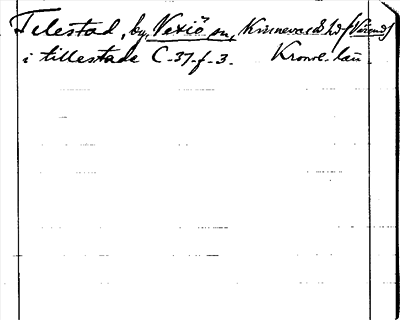 Telestad, by, Vexiö sn, Kinnevalds hd (Värend)
i tillestada C-37-f-3. Kronob. län.